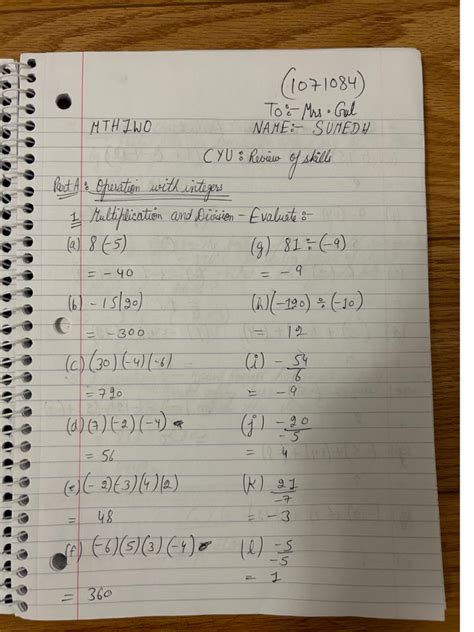 (1071084)
To:- Mrs. Gul
MTH1WO NAME:- SUMEDH
CYU: Review of skills
Part A: Operation with integers
1 Multiplication and Division - Evaluate:-
(a) 8(-5) (g) 81÷(-9)
= -40 = -9
(b) -15(20) (h) (-120) ÷ (-10)
= -300 = 12
(c) (30)(-4)(-6) (i) - 54/6
= 720 = -9
(d) (7)(-2)(-4) (j) -20/-5
= 56 = 4
(e) (-2)(-3)(4)(2) (k) 21/-7
= 48 = -3
(f) (-6)(5)(3)(-4) (l) -5/-5
= 360 = 1